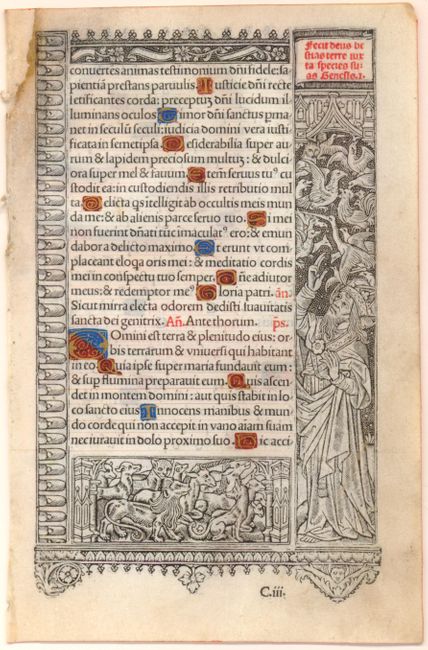 Fecit deus be
stias terre iux
ta species su
as Genesis .1.
convertes animas testimonium dñi fidele: sa-
pientiã prestans parvulis. Iusticie dñi recte
letificantes corda: preceptũ dñi lucidum il
luminans oculos. Timor dñi sanctus pma-
net in seculũ seculi: iudicia domini vera iusti-
ficata in semetipsa. Desiderabilia super au
rum & lapidem preciosum multũ: & dulci
ora super mel & fauum. Etem̃ seruus tuꝰ cu
stodit ea: in custodiendis illis retributio mul
ta. Delicta q̃s itelligit ab occultis meis mun
da me: & ab alienis parce seruo tuo. Si mei
non fuerint dñati tũc imaculatꝰ ero: & emun
dabor a delicto maximo. Et erunt vt com
placeant eloq̃a oris mei: & meditatio cordis
mei in conspectu tuo semper. Dñe adiutor
meus: & redemptor meꝰ. Gloria patri. añ.
Sicut mirra electa odorem dedisti suauitatis
sancta dei genitrix. Añ. Antethorum. p̃s.
Domini est terra & plenitudo eius: or-
bis terrarum & vniuersi qui habitant
in eo. Quia ipse super maria fundauit eum:
& sup flumina preparauit eum. Quis ascen
det in montem domini: aut quis stabit in lo
co sancto eius. Innocens manibus & mun
do corde qui non accepit in vano aĩam suam
nec iurauit in dolo proximo suo. Hic acci
C.iii.